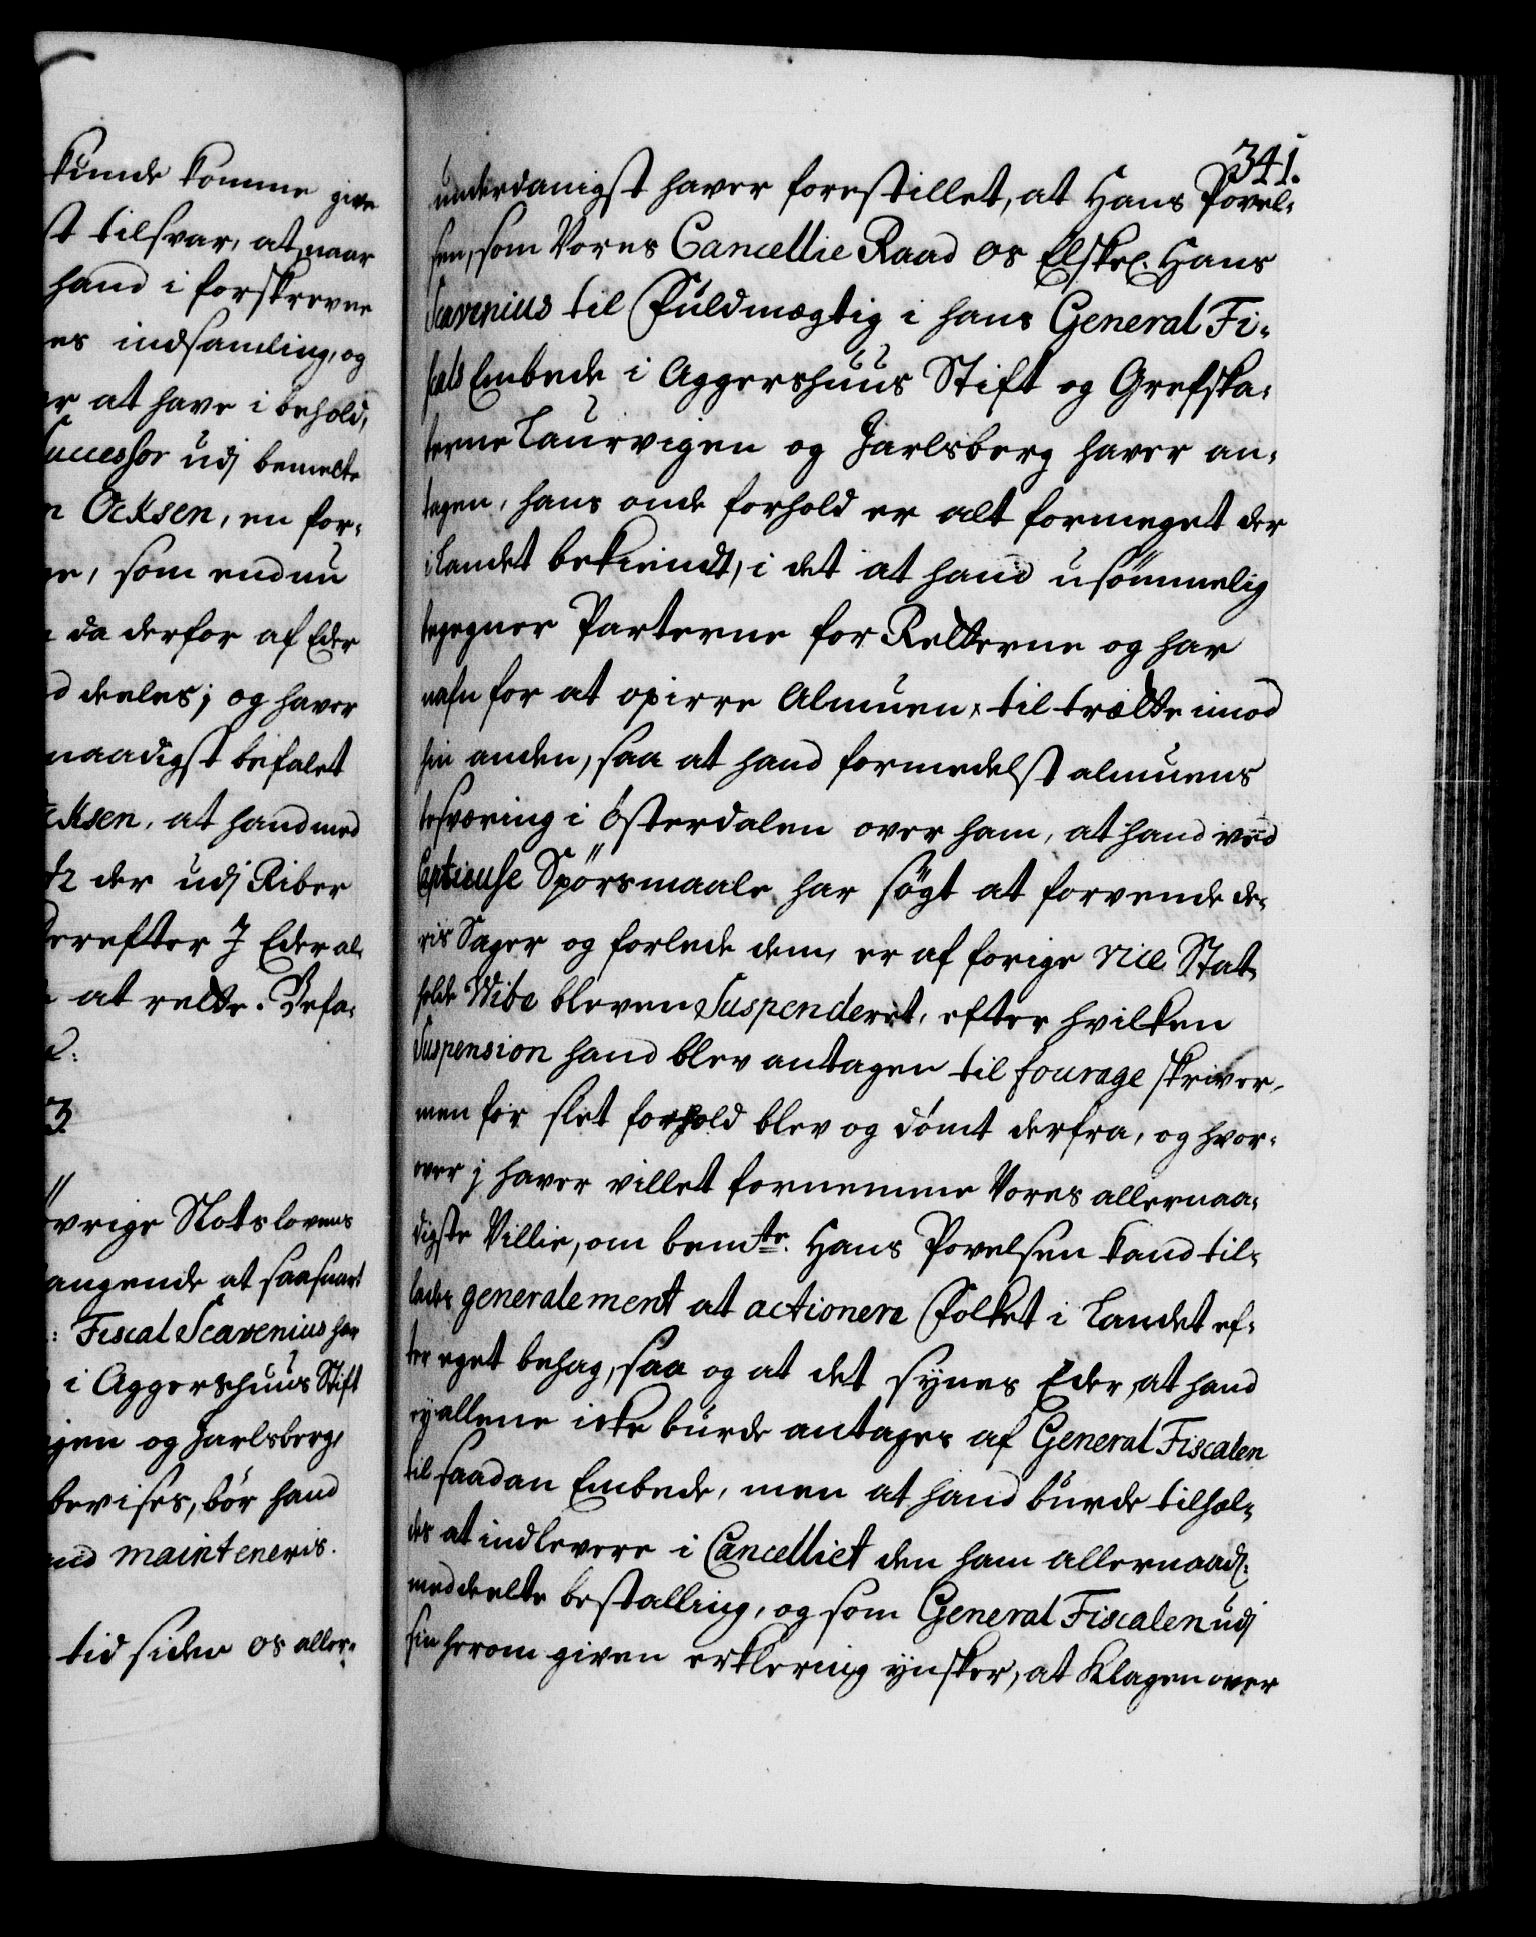 kunde komme give
st tilsvar, at naar
hand i forskrevne
es indsamling, og
er at have i behold,
uccessor udj bemelte
n Ocksen, en for-
ge, som endnu
da derfor af Eder
d deeles; og haver
naadigst befalet
cksen, at hand med
der udj Riber
derefter I Eder al-
at rette. Befa-
3
øvrige Slotslovens
angende at saasnart
: Fiscal Scavenius har
i Aggershuus Stift
igen og Jarlsberg,
bevises, bør hand
und mainteneris.
tid siden os aller-
341.
underdanigst haver forestillet, at Hans Povel-
sen, som Vores Cancellie Raad os Elskel. Hans
Scavenius til Fuldmægtig i hans General Fi-
scals Embede i Aggershuus Stift og Grefska-
terne Laurvigen og Jarlsberg haver an-
tagen, hans onde forhold er alt formeget der
i Landet bekiendt, i det at hand usømmelig
begegner Parterne for Retterne og har
nafn for at opirre Almuen til trætte imod
hin anden, saa at hand formedelst almuens
besværing i Østerdalen over ham, at hand ved
Captieuse Spørsmaale har søgt at forvende de-
ris Sager og forlede dem, er af forige vice Stat-
holder Wibe bleven Suspenderet, efter hvilken
Suspension hand blev antagen til fourage skriver,
men for slet forhold blev og dømt derfra, og hvor-
over j haver villet fornemme Vores allernaa-
digste Villie, om bemte. Hans Povelsen kand til-
lades generalement at actionere Folket i Landet ef-
ter eget behag, saa og at det synes Eder, at hand
ey allene icke burde antages af General Fiscalen
til saadan Embede, men at hand burde tilhol-
des at indlevere i Cancelliet den ham allernaad:
meddeelte bestalling, og som General Fiscalen udj
sin herom given erklering ynsker, at Klagen over